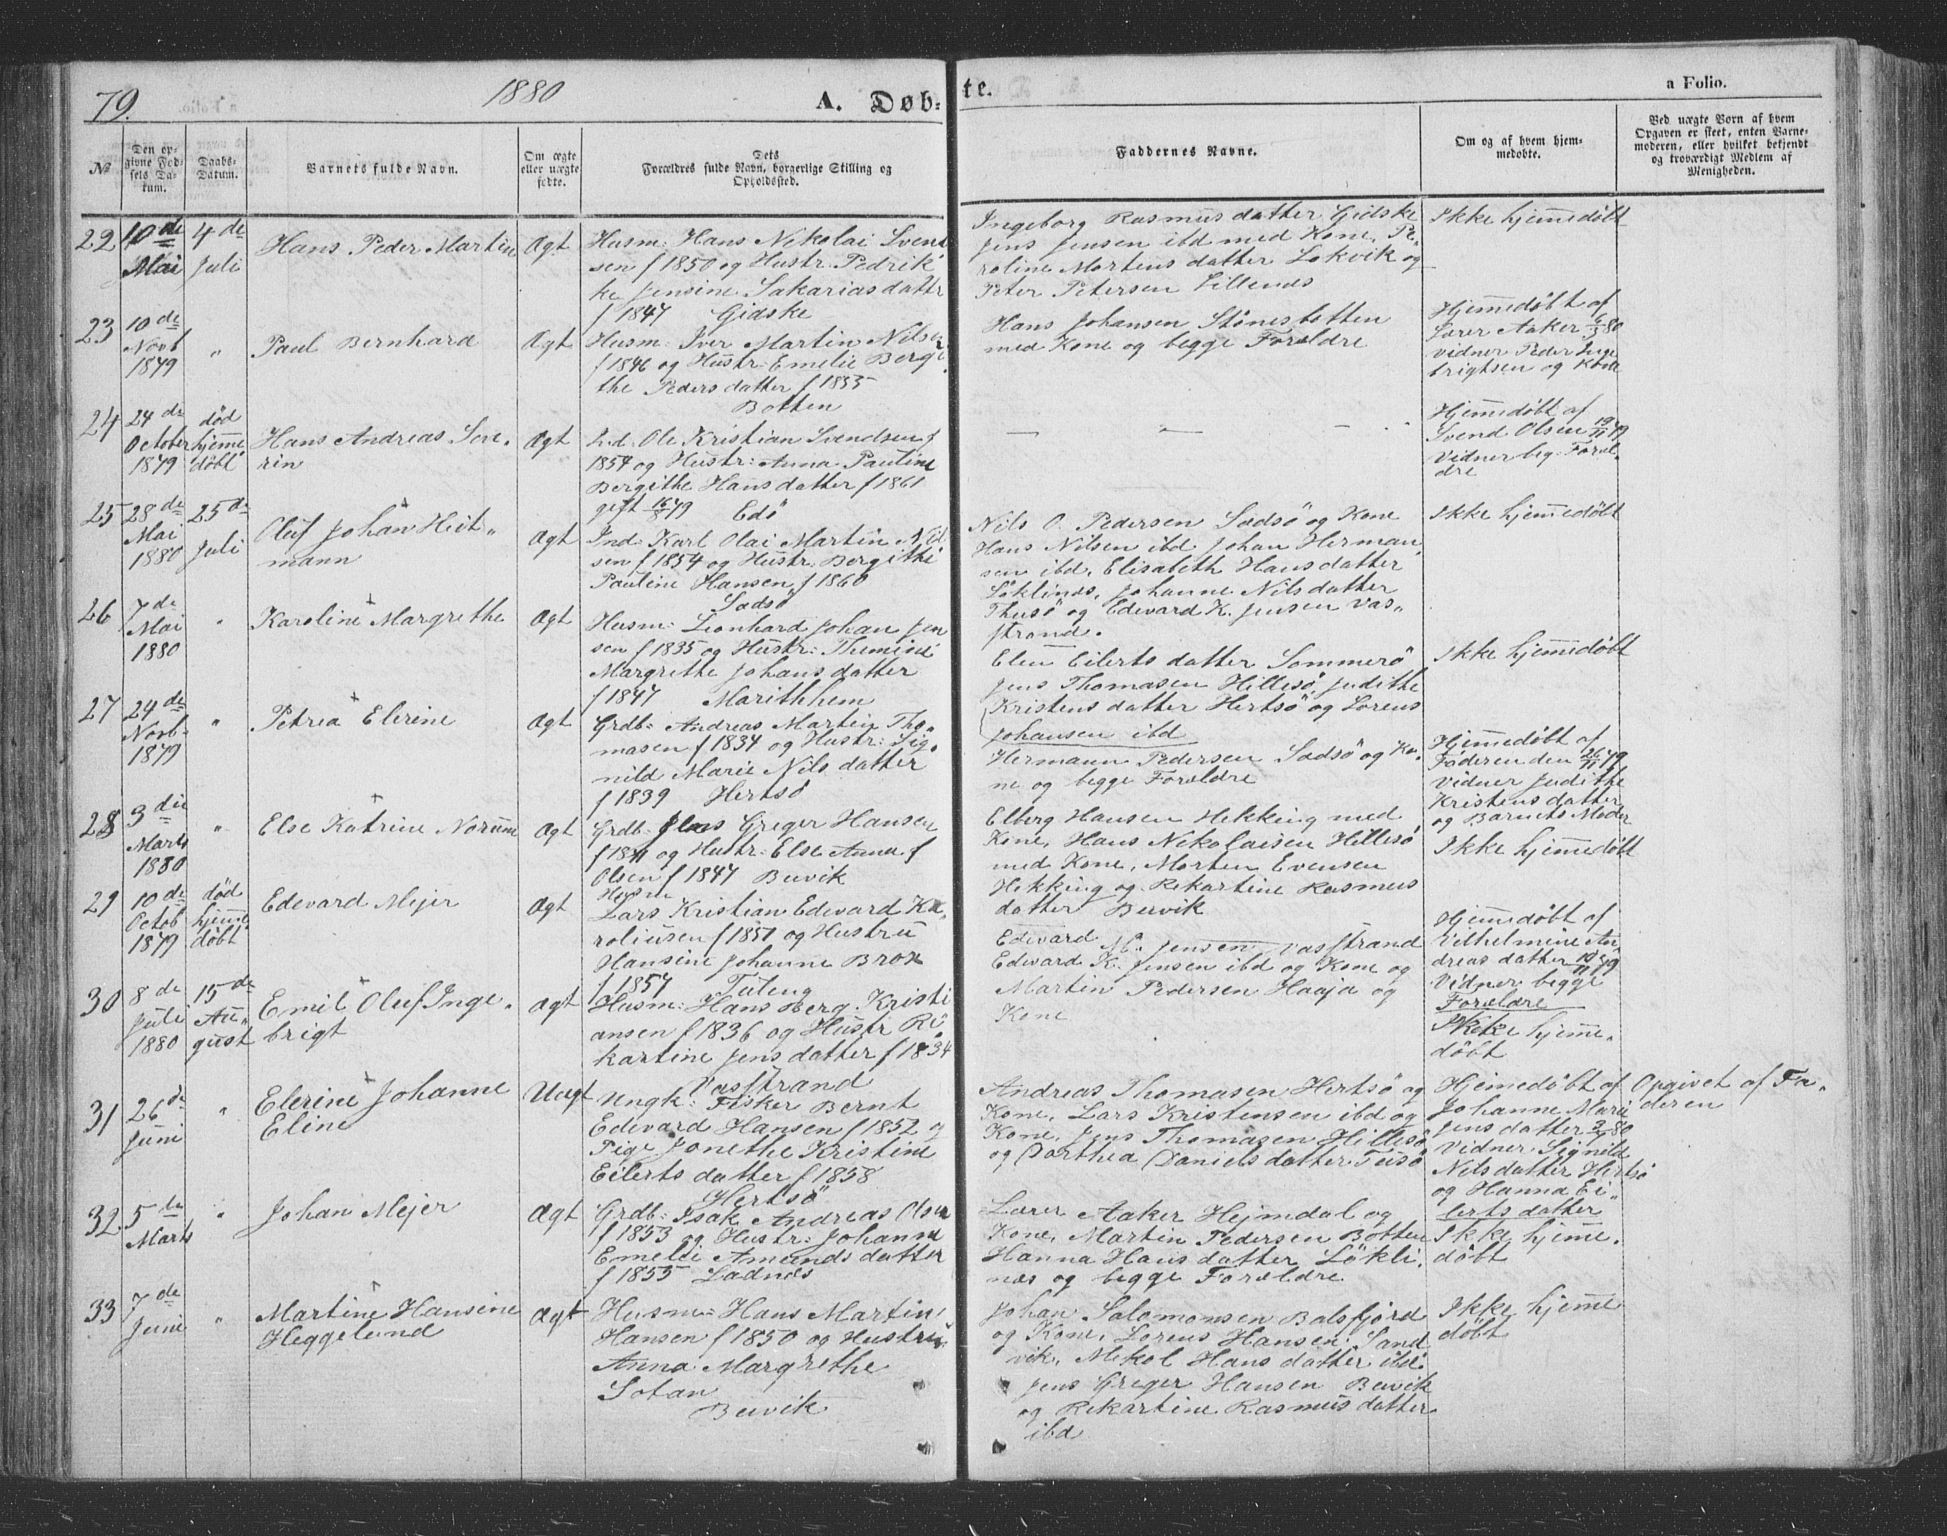 79.
1880
A. Døb-
te.
a Folio.
№
Den op-
givne Fød-
sels Da-
tum.
Daabs-
Datum.
Barnets fulde Navn.
Om ægte
eller uægte
fødte.
Dets
Forældres fulde Navn, borgerlige Stilling og
Opholdssted.
Faddernes Navne.
Om og af hvem hjem-
medøbte.
Ved uægte Børn af hvem
Opgaven er skeet, enten Barne-
moderen, eller hvilket bekjendt
og troværdigt Medlem af
Menigheden.
22
10de
Mai
4de
Juli
Hans Peder Martin
Ægt
Husm: Hans Nikolai Svend
sen f 1850 og Hustr: Fedrik
ke Jensine Sakariasdattr
f 1847 Gidske
Ingeborg Rasmusdatter Gidske
Jens Jensen ibd med Kone, Pe-
roline Mortensdatter Lökvik og
Peter Petersen Lillenäs
Ikke hjemmedøbt
23
10de
Novb
1879
"
Paul Bernhard
Ægt
Husm: Iver Martin Nilsen
f 1846 og Hustr: Emelie Bergi
the Pedersdatter f 1855
Botten
Hans Johansen Stönesbotten
med Kone og begge Forældre
Hjemmedøbt af
Lærer Aaker 6/3 80
vidner Peder Inge
brigtsen og Kone
24
24de
October
1879
død
hjemme
døbt
Hans Andreas Seve-
rin
Ægt
Ind: Ole Kristian Svendsen f
1854 og Hustr: Anna Pauline
Bergithe Hansdatter f 1861
gift 16/8 79 Edö
— " — .
Hjemmedøbt af
Svend Olsen 19/11 79
Vidner beg. Foræl-
dre
25
28de
Mai
1880
25de
Juli
Oluf Johan Heit-
mann
Ægt
Ind: Karl Olai Martin Nil
sen f 1854 og Hustr. Bergithe
Pauline Hansen f 1860
Sadsö
Nils O. Pedersen Sadsö og Kone
Hans Nilsen ibd. Johan Herman
sen ibd, Elisabeth Hansdatter
Löklinds, Johanne Nilsdatter
Thusö og Edevard K. Jensen Vas-
strand.
Ikke hjemmedøbt
26
7de
Mai
1880
"
Karoline Margrethe
Ægt
Husm: Lionhard Johan Jen
sen f 1835 og Hustr: Thumine
Margrethe Johansdatter
f 1847 Marithhem
Elen Eilertsdatter Sommerö
Jens Thomasen Hillesö, Judithe
Kristensdatter Hertsö og Lorens
Johansen ibd
Ikke hjemmedøbt
27
24de
Novb-
1879
"
Petrea Elerine
Ægt
Grdb: Andreas Martin Tho-
masen f 1834 og Hustr: Sig-
nild Marie Nilsdatter
f 1839 Hertsö
Hermann Pedersen Sadsö og Ko-
ne og begge Forældre
Hjemmedøbt af
Faderen den 26/11 79
Vidner Judithe
Kristensdatter
og Barnets Moder
28
3die
Marts
1880
"
Else Katrine Norum
Ægt
Grdb: Jens Greger Hansen
f 1841 og Hustr: Else Anna f
Olsen f 1847 Buvik
Elberg Hansen Hekking med
Kone, Hans Nikolaisen Hillesö
med Kone, Morten Evensen
Hekking og Rekartine Rasmus
datter Buvik
Ikke hjemmedøbt
29
10de
Octob
1879
død
hjemme
døbt
Edevard Mejer
Ægt
Husm
Lars Kristian Edevard Ka-
roliusen f 1851 og Hustru
Hansine Johanne Brox
f 1857 Tuteng
Edevard M. Jensen Vasstrand
Edevard K. Jensen ibd og Kone og
Martin Pedersen Haaja og
Kone
Hjemmedøbt af
Vilhelmine An-
dreasdatter 10/11 79
Vidner begge
Forældre
30
8de
Juli
1880
15de
Au-
gust
Emil Oluf Inge-
brigt
Ægt
Husm: Hans Berg Kristi
ansen f 1836 og Hustr Ri-
kartine Jensdatter f 1834
Vasstrand
Ikke hjemme-
døbt
31
26de
Juni
"
Elerine Johanne
Eline
Uægt
Ungk: Fisker Bernt
Edevard Hansen f 1852 og
Pige Jonethe Kristine
Eilertsdatter f 1858
Hertsö
Andreas Thomasen Hertsö og
Kone, Lars Kristensen ibd og
Kone, Jens Thomasen Hillesö
og Darthea Danielsdatter Tusö
Hjemmedøbt af
Johanne Marie
Jensdatter 3/7 80
Vidner Signild
Nilsdatter Hertsö
og Hanna Ei-
lertsdatter
Opgivet af Fa-
deren
32.
5de
Marts
"
Johan Mejer
Ægt
Grdb: Isak Andreas Olsen
f 1853 og Hustr: Johanne
Emelie Amundsdatter
f 1855 Ladnes
Lærer Aaker Hejmdal og
Kone, Martin Pedersen Botten
Hanna Hansdatter Lökli-
næs og begge Forældre
Ikke hjemme-
døbt
33
7de
Juni
"
Martine Hansine
Heggelund
Ægt
Husm: Hans Martin
Hansen f 1850 og Hustru
Anna Margrethe
Sotan
Buvik
Johan Salomonsen Balsfjord
og Kone, Lorens Hansen Sand
vik, Nikol Hansdatter ibd.
Jens Greger Hansen Buvik
og Rekartine Rasmusdatter
ibd
Ikke hjemme
døbt